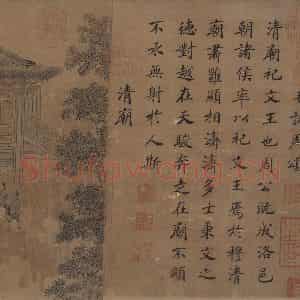 清廟祀文王也周公既成洛邑
朝諸侯率以祀文王焉於穆清
廟肅雝顯相濟濟多士秉文之
德對越在天駿奔走在廟不顯
不承無射於人斯
清廟
Shufawang.CN